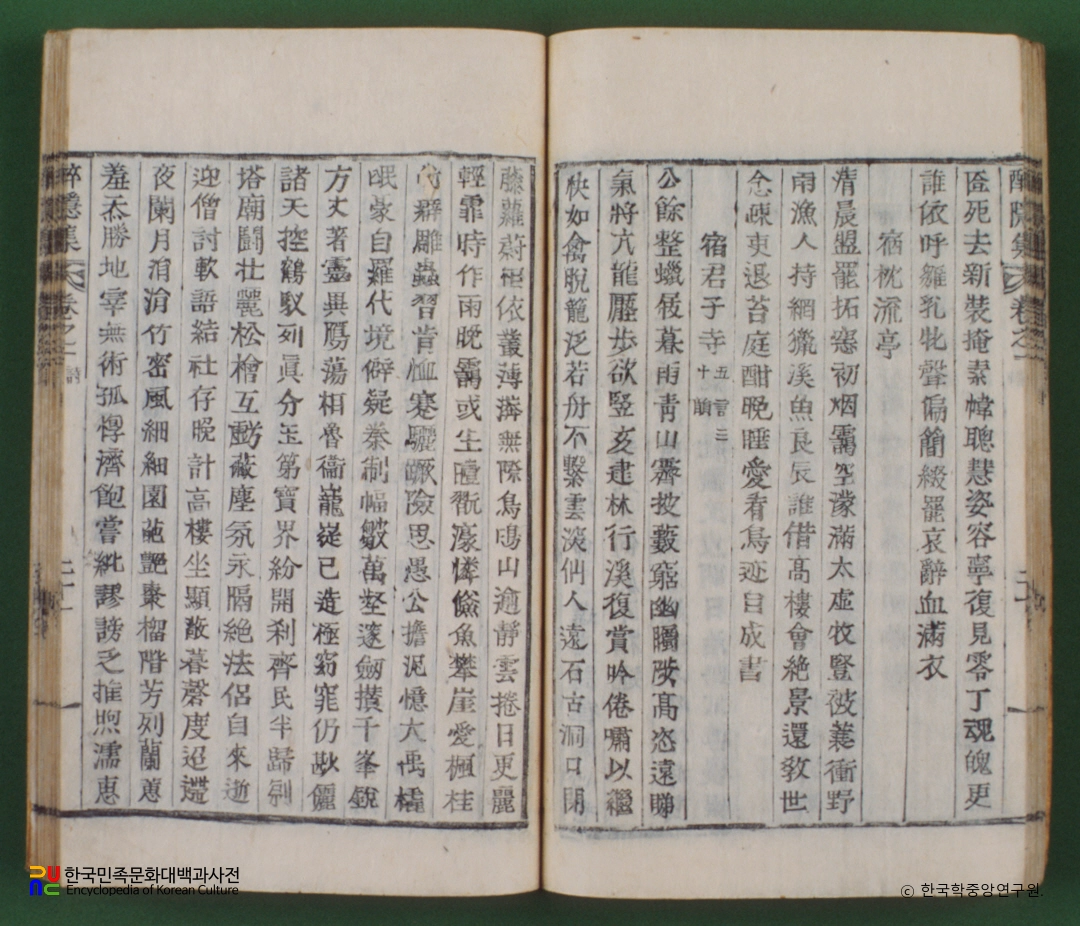 醉隱集 卷之一
匳死去新裝掩素幃聰慧姿容寧復見零丁魂魄更
誰依呼雛乳牝聲偏簡綴罷哀辭血滿衣
宿枕流亭
淸晨盥罷拓窓初烟靄空濛滿太虛牧豎披蓑衝野
雨漁人持網獵溪魚良辰誰借高樓會絶景還敎世
念疎吏退苔庭酣晩睡愛看鳥迹自成書
宿君子寺 五言三十韻
公餘整蠟屐暮雨靑山霽披藪窮幽矚陟高恣遠睇
氣將亢龍壓步欲竪亥逮林行溪復賞吟倦嘯以繼
快如禽脫籠泛若舟不繫雲深仙人遠石古洞口閉
藤蘿蔚 依叢薄渺無際鳥鳴山逾靜雲捲日更麗
輕霏時作雨晩靄或生曀翫濠憐儵魚攀崖愛楓桂
尙辭雕蟲習肯恤蹇驢蹶險思愚公擔泥憶大禹橇
眠豪自羅代境僻疑秦制幅皴萬壑邃劒攢千峯銳
方丈著靈異鴈蕩相魯衛巃嵸已造極窈窕仍耿儷
諸天控鶴馭列眞分玉第寶界紛開刹齊民半歸剃
塔廟鬪壯麗松檜互虧蔽塵氛永隔絶法侶自來逝
迎僧討軟語結社存晩計高樓坐顯敞暮磬度迢遰
夜闌月涓涓竹密風細細園葩艶棗榴階芳列蘭蕙
羞忝勝地宰無術孤惸濟飽嘗紕謬謗乏推煦濡惠
醉隱集 卷之一 詩 二十一
한국민족문화대백과사전
Encyclopedia of Korean Culture
© 한국학중앙연구원.